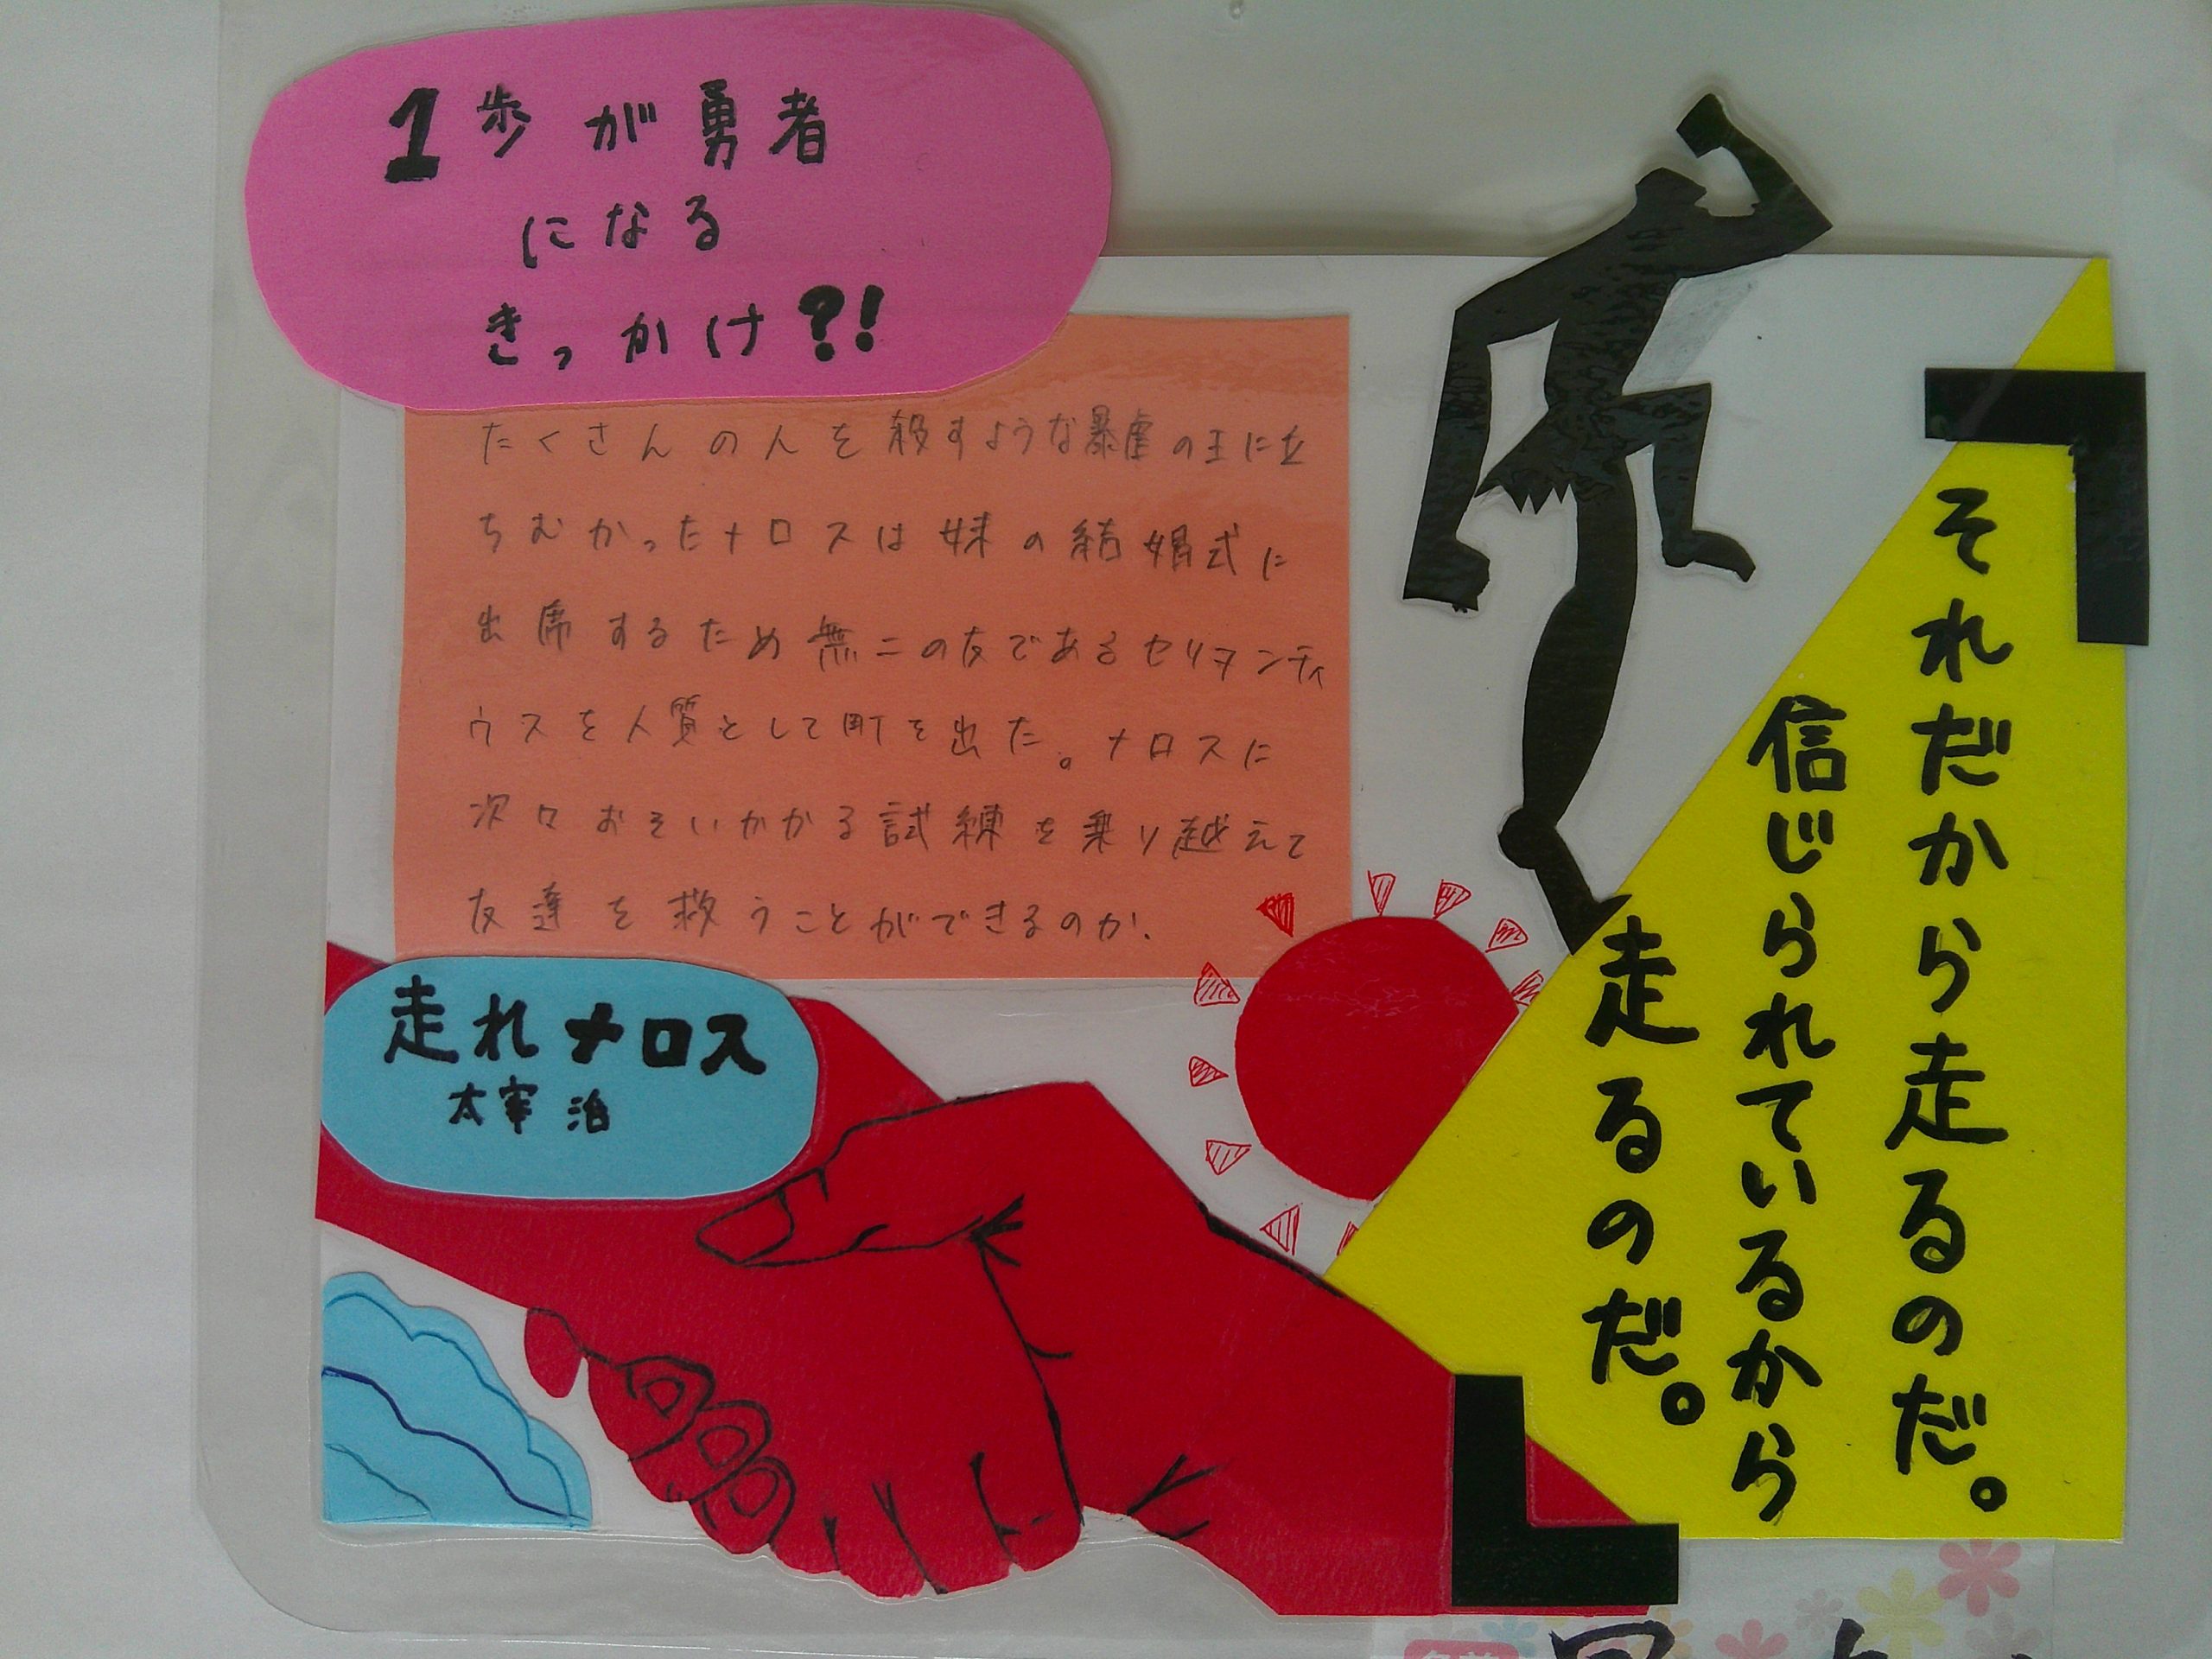 1歩が勇者
になる
きっかけ?!
たくさんの人を殺すような暴虐の王に立
ちむかったメロスは妹の結婚式に
出席するため無二の友であるセリヌンティ
ウスを人質として町を出た。メロスに
次々おそいかかる試練を乗り越えて
友達を救うことができるのか、
走れメロス
太宰治
「それだから走るのだ。
信じられているから
走るのだ。」